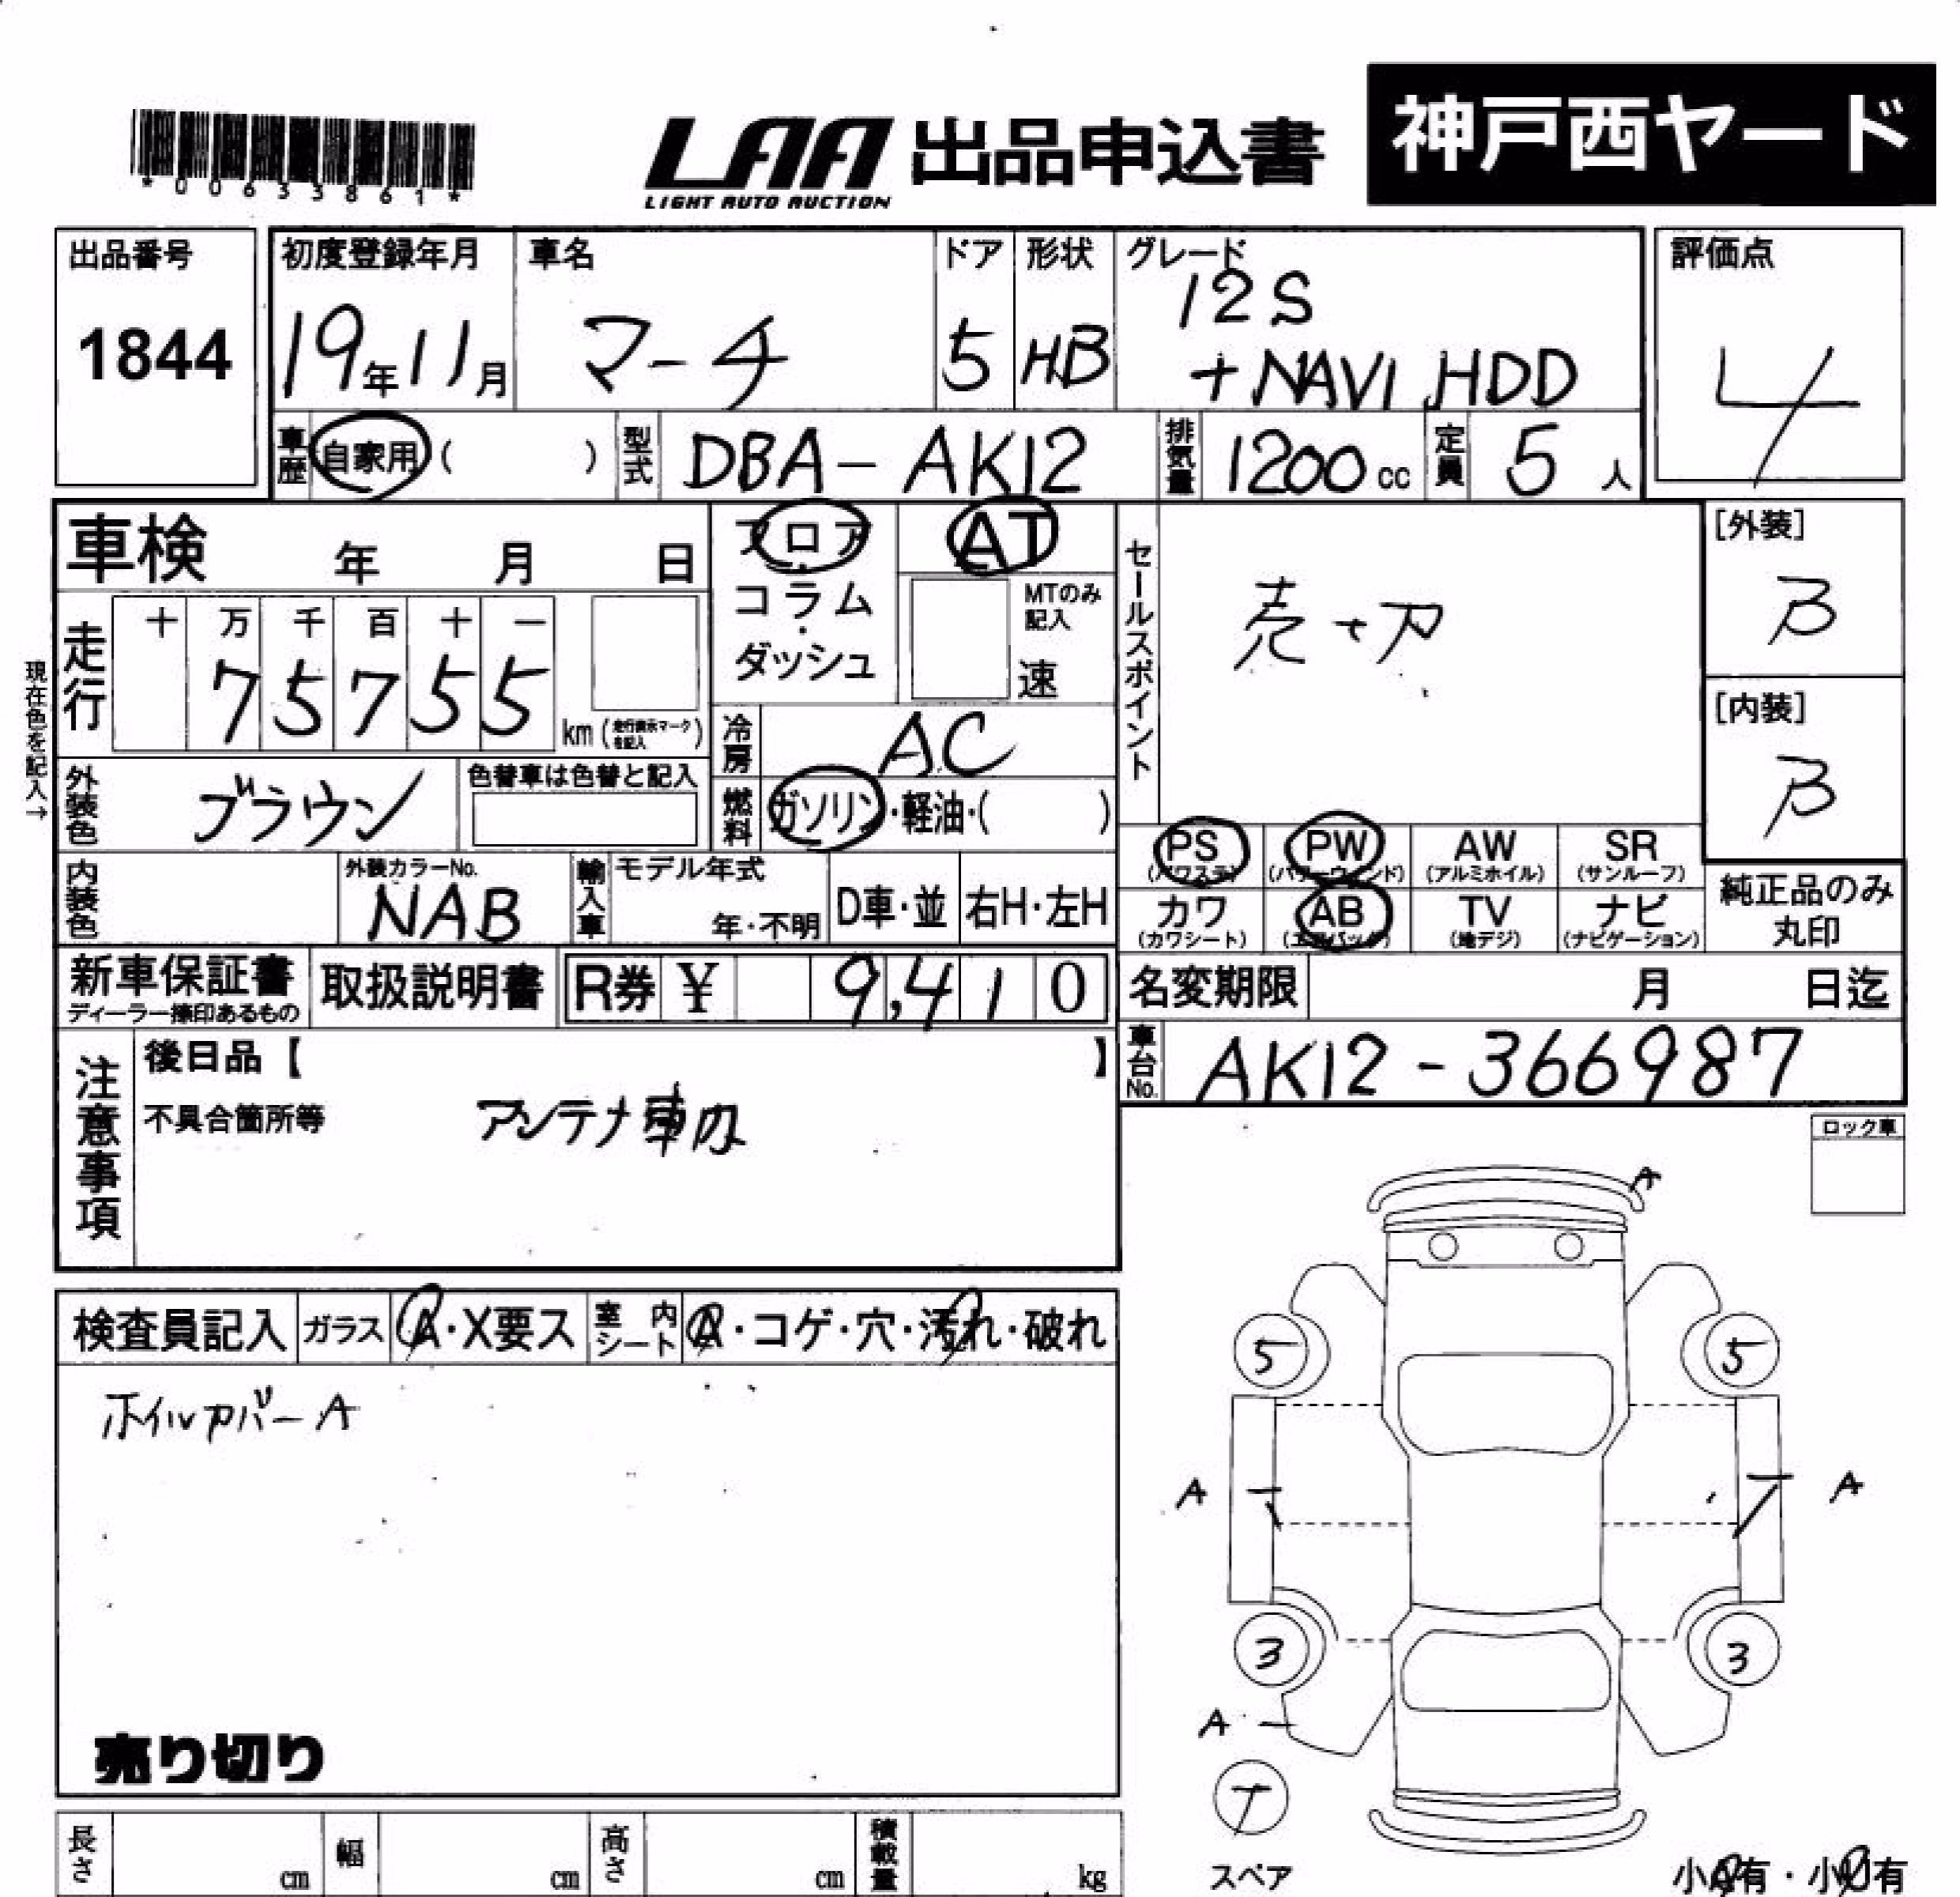 *00633861*
LAA 出品申込書
LIGHT AUTO AUCTION
神戸西ヤード
出品番号
1844
初度登録年月
19年11月
車名
マーチ
ドア
5
形状
HB
グレード
12S
+NAVI HDD
評価点
4
車歴
自家用 ( )
型式
DBA-AK12
排気量
1200cc
定員
5人
車検 年 月 日
フロア
・
コラム
・
ダッシュ
AT
MTのみ
記入
速
セールスポイント
[外装]
B
[内装]
B
現在色を記入→
走行
十 万 千 百 十 一
7 5 7 5 5
km
冷房
AC
外装色
ブラウン
色替車は色替と記入
燃料
ガソリン・軽油・( )
内装色
外装カラーNo.
NAB
輸入車
モデル年式
年・不明
D車・並
右H・左H
PS (パワステ)
PW (パワーウィンド)
AW (アルミホイル)
SR (サンルーフ)
カワ (カワシート)
AB (エアバック)
TV (地デジ)
ナビ (ナビゲーション)
純正品のみ
丸印
新車保証書
ディーラー捺印あるもの
取扱説明書
R券 ¥ 9,410
名変期限 月 日迄
車台No.
AK12-366987
注意事項
後日品【 】
不具合箇所等
アンテナ車内
ロック車
検査員記入
ガラス
A・X要ス
室内シート
A・コゲ・穴・汚れ・破れ
ホイルカバーA
売り切り
A
5 5
A A
3 3
A
T
スペア
小A有・小U有
長さ cm
幅 cm
高さ cm
積載量 kg